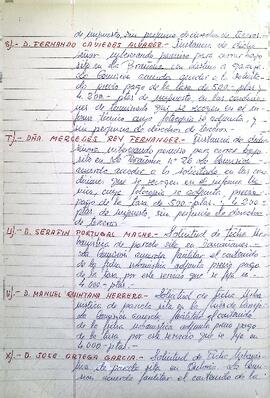 de impuesto, sin perjuicio de derechos de tercero.
S).- D. FERNANDO CAVIEDES ALVAREZ.- Instancia de dicho
señor solicitando permiso para
sito en La con destino a garaje.
La Comisión acuerda acceder a lo solicita-
do previo pago de la tasa de 500- ptas y
4.500- ptas de impuesto en las condicio-
nes que se recogen en el informe
técnico cuya fotocopia se adjunta, y
sin perjuicio de derechos de tercero.
T).- DÑA. MERCEDES REY FERNANDEZ.- Instancia de dicha
señora solicitando permiso para
sito en La Nº 26 la Comisión
acuerda acceder a lo solicitado en las con-
diciones que se recogen en el informe técni-
co cuya fotocopia se adjunta previo
pago de la tasa de 500- ptas y 4.200-
ptas de impuesto, sin perjuicio de derechos
de tercero
U).- D. SERAFIN PORTUGAL MACHO.- Solicitud de Ficha Ur-
banística de parcela sita en
La Comisión acuerda facilitar el contenido
de la ficha urbanística adjunta previo pago
de la tasa, por este servicio que se fija en
4.000- ptas.-
V).- D. MANUEL QUINTANA HERRERO.- Solicitud de Ficha Urba-
nística de parcela sita en
La Comisión acuerda facilitar el contenido
de la ficha urbanística adjunta previo pago
de la tasa por este servicio que se fija en
4.000 ptas.-
X).- D. JOSE ORTEGA GARCIA.- Solicitud de Ficha Urbanís-
tica de parcela sita en La Co-
misión acuerda facilitar el contenido de la